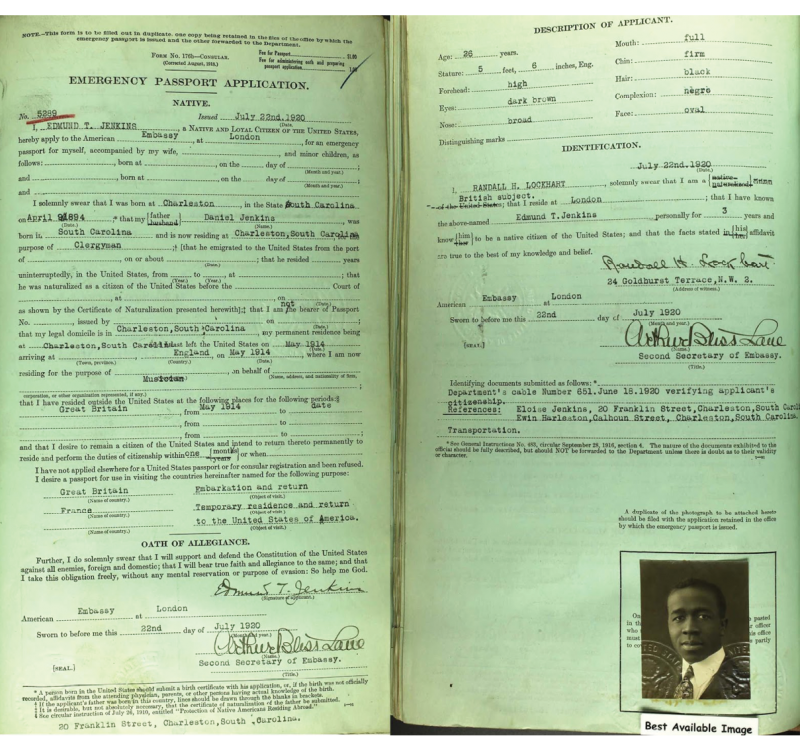 NOTE.—This form is to be filled out in duplicate, one copy being retained in the files of the office by which the
emergency passport is issued and the other forwarded to the Department.
FORM No. 176b—CONSULAR.
(Corrected August, 1919.)
Fee for Passport $1.00
Fee for administering oath and preparing
passport application 1.00
EMERGENCY PASSPORT APPLICATION.
NATIVE.
No. 5289 Issued July 22nd.1920
(Date.)
I, EDMUND T. JENKINS, a NATIVE AND LOYAL CITIZEN OF THE UNITED STATES,
hereby apply to the American Embassy, at London, for an emergency
passport for myself, accompanied by my wife, and minor children, as
follows: , born at , on the day of
(Month and year.)
and , born at , on the day of
(Month and year.)
and
I solemnly swear that I was born at Charleston, in the State South Carolina
on April 1894 that my father husband Daniel Jenkins, was
(Date.) (Name.)
born in South Carolina and is now residing at Charleston,South Carolina
purpose of Clergyman ;† [that he emigrated to the United States from the
port of , on or about ; that he resided years
(Date.)
uninterruptedly, in the United States, from to , at ; that
(Year.) (Year.)
he was naturalized as a citizen of the United States before the Court of
, at , on
(Date.)
as shown by the Certificate of Naturalization presented herewith];‡ that I am not the bearer of Passport
No. , issued by on ;
(Date.)
that my legal domicile is in Charleston,South Carolina, my permanent residence being
at Charleston,South Carolina last left the United States on May 1914
arriving at England, on May 1914, where I am now
(Town, province.) (Country.) (Date.)
residing for the purpose of , on behalf of
Musician
(Name, address, and nationality of firm,
corporation, or other organization represented, if any.)
that I have resided outside the United States at the following places for the following periods:§
Great Britain, from May 1914 to date
, from to
, from to
and that I desire to remain a citizen of the United States and intend to return thereto permanently to
reside and perform the duties of citizenship within one months years or when
I have not applied elsewhere for a United States passport or for consular registration and been refused.
I desire a passport for use in visiting the countries hereinafter named for the following purpose:
Great Britain Embarkation and return
(Name of country.) (Object of visit.)
France Temporary residence and return
(Name of country.) (Object of visit.)
to the United States of America.
(Name of country.) (Object of visit.)
OATH OF ALLEGIANCE.
Further, I do solemnly swear that I will support and defend the Constitution of the United States
against all enemies, foreign and domestic; that I will bear true faith and allegiance to the same; and that
I take this obligation freely, without any mental reservation or purpose of evasion: So help me God.
Edmund T. Jenkins
(Signature of applicant.)
American Embassy at London
Sworn to before me this 22nd day of July 1920
(Month and year.)
Arthur Bliss Lane
(Name.)
Second Secretary of Embassy.
[SEAL.]
(Title.)
* A person born in the United States should submit a birth certificate with his application, or, if the birth was not officially
recorded, affidavits from the attending physician, parents, or other persons having actual knowledge of the birth.
† If the applicant's father was born in this country, lines should be drawn through the blanks in brackets.
‡ It is desirable, but not absolutely necessary, that the certificate of naturalization of the father be submitted.
§ See circular instruction of July 26, 1910, entitled "Protection of Native Americans Residing Abroad."
20 Franklin Street, Charleston,South Carolina.
DESCRIPTION OF APPLICANT.
Age: 26 years.
Stature: 5 feet, 6 inches, Eng.
Forehead: high
Eyes: dark brown
Nose: broad
Mouth: full
Chin: firm
Hair: black
Complexion: negre
Face: oval
Distinguishing marks
IDENTIFICATION.
July 22nd.1920
(Date.)
I, RANDALL H. LOCKHART, solemnly swear that I am a native naturalized
British subject.
of the United States; that I reside at London; that I have known
the above-named Edmund T.Jenkins personally for 3 years and
know him her to be a native citizen of the United States; and that the facts stated in his her affidavit
are true to the best of my knowledge and belief.
Randall H. Lockhart
24 Goldhurst Terrace,N.W. 2.
(Address of witness.)
American Embassy London
Sworn to before me this 22nd day of July 1920
(Month and year.)
Arthur Bliss Lane
[SEAL.] (Name.)
Second Secretary of Embassy.
(Title.)
Identifying documents submitted as follows:*
Department's cable Number 651.June 18.1920 verifying applicant's
citizenship.
References: Eloise Jenkins, 20 Franklin Street,Charleston,South
Ewin Harleston,Calhoun Street, Charleston,South Carolina.
Transportation.
* See General Instructions No. 463, circular September 29, 1916, section 4. The nature of the documents exhibited to the
official should be fully described, but should NOT be forwarded to the Department unless there is doubt as to their validity
or character.
A duplicate of the photograph to be attached hereto
should be filed with the application retained in the office
by which the emergency passport is issued.
Best Available Image